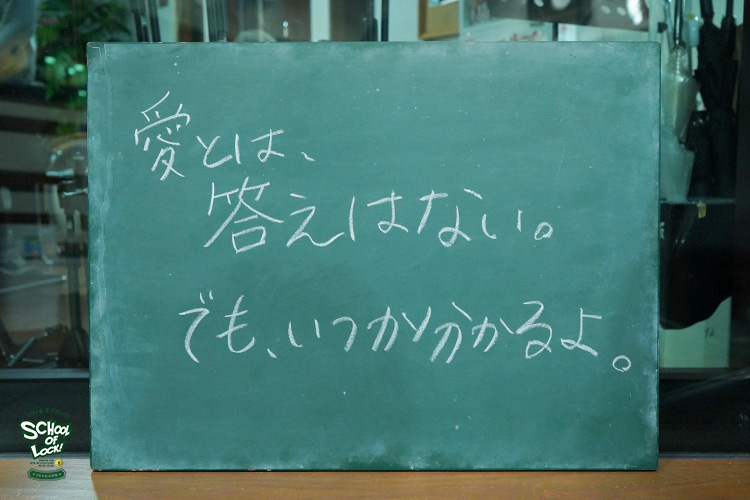 愛とは、
答えはない。
でも、いつか分かるよ。
SCHOOL
OF
LOCK!